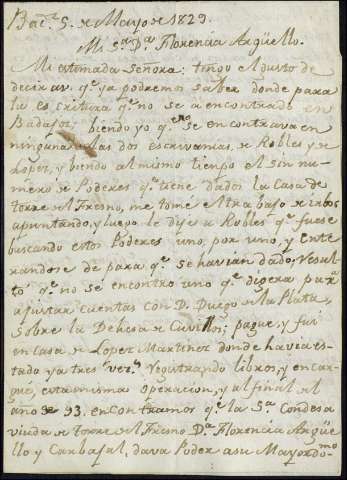 Bad.ᶻ 5. de Mayo de 1829.
Mi S.ʳᵃ D.ᵃ Florencia Argüello.
Mi estimada Señora: tengo el gusto de
decir a v. q.ᵉ ya podremos saber donde para
la escritura q.ᵉ no se a encontrado en
Badajoz, biendo yo q.ᵉ no se encontrava en
ninguna de las dos escrivanias, de Robles y de
Lopez, y biendo al mismo tiempo el sin nu-
mero de Poderes q.ᵉ tiene dados la Casa de
torre del Fresno, me tomé el trabajo de irlos
apuntando, y luego le dije a Robles q.ᵉ fuese
buscando estos Poderes uno, por uno, y ente
randose de para q.ᵉ se havian dado, resul-
tó q.ᵉ no se encontro uno q.ᵉ digera par.ᵃ
ajustar cuentas con D. Diego de la Plata
sobre la Dehesa de Cuvillos; pagué, y fui
en casa de Lopez Martinez donde havia es-
tado ya tres vez.ˢ registrando libros, y encar-
gué, esta misma operacion, y al final del
año de 93, encontramos q.ᵉ la S.ᵃ Condesa
viuda de torre del Fresno D.ᵃ Florencia Argüe
llo y Carbajal, dava Poder a su Mayordo.ᵐᵒ